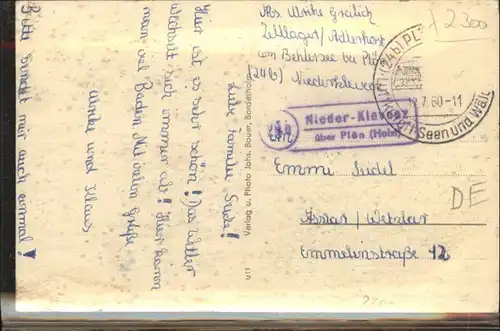 Liebe Familie Seidel!
Hier ist es sehr schön! Das Wetter
wechselt sich immer ab! Hier kann
man viel Baden. Mit vielen Grüße
Ulrike und Klaus
Bitte schreibt mir auch einmal!
Verlag u. Photo Johs. Bauer, Bordesholm
U11
Abs. Ulrike
Zeltlager/Adlerhorst
am Behlersee bei Plön
(24b) Niederkleveez
+ 2300
(24b) PL
7.60-11
Seen und Wäl
Nieder-Kleveez
über Plön (Holst)
An
Emmi Seidel
Asslar/Wetzlar
Emmelinstraße 12
DE